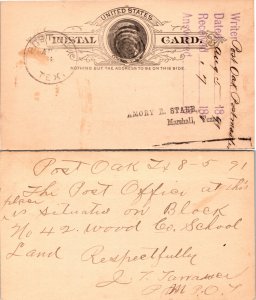 UNITED STATES
POSTAL CARD.
NOTHING BUT THE ADDRESS TO BE ON THIS SIDE.
TEX.
AMORY R. STARR,
Marshall, Texas
Written
Post Oak
Dated Aug 5 1891
Received
18
Post Oak Tx 8-5-91
The Post Office at this
place
is situated on Block
No 42. Wood Co. School
Land Respectfully
J. T.
P.M. P.O.T